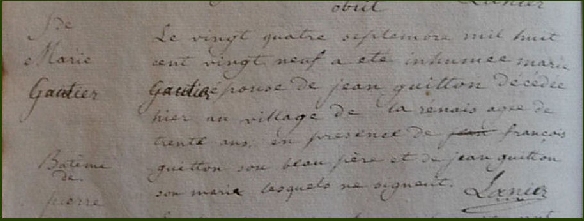 obiit Lanier
S. de Le vingt quatre septembre mil huit
Marie cent vingt neuf a ete inhumée marie
Gautier Gautier épouse de jean guitton décédée
hier au village de la renais agee de
trente ans, en presence de jean francois
Batême guitton son beau père et de jean guitton
de son marie lesquels ne signent. Lanier
pierre